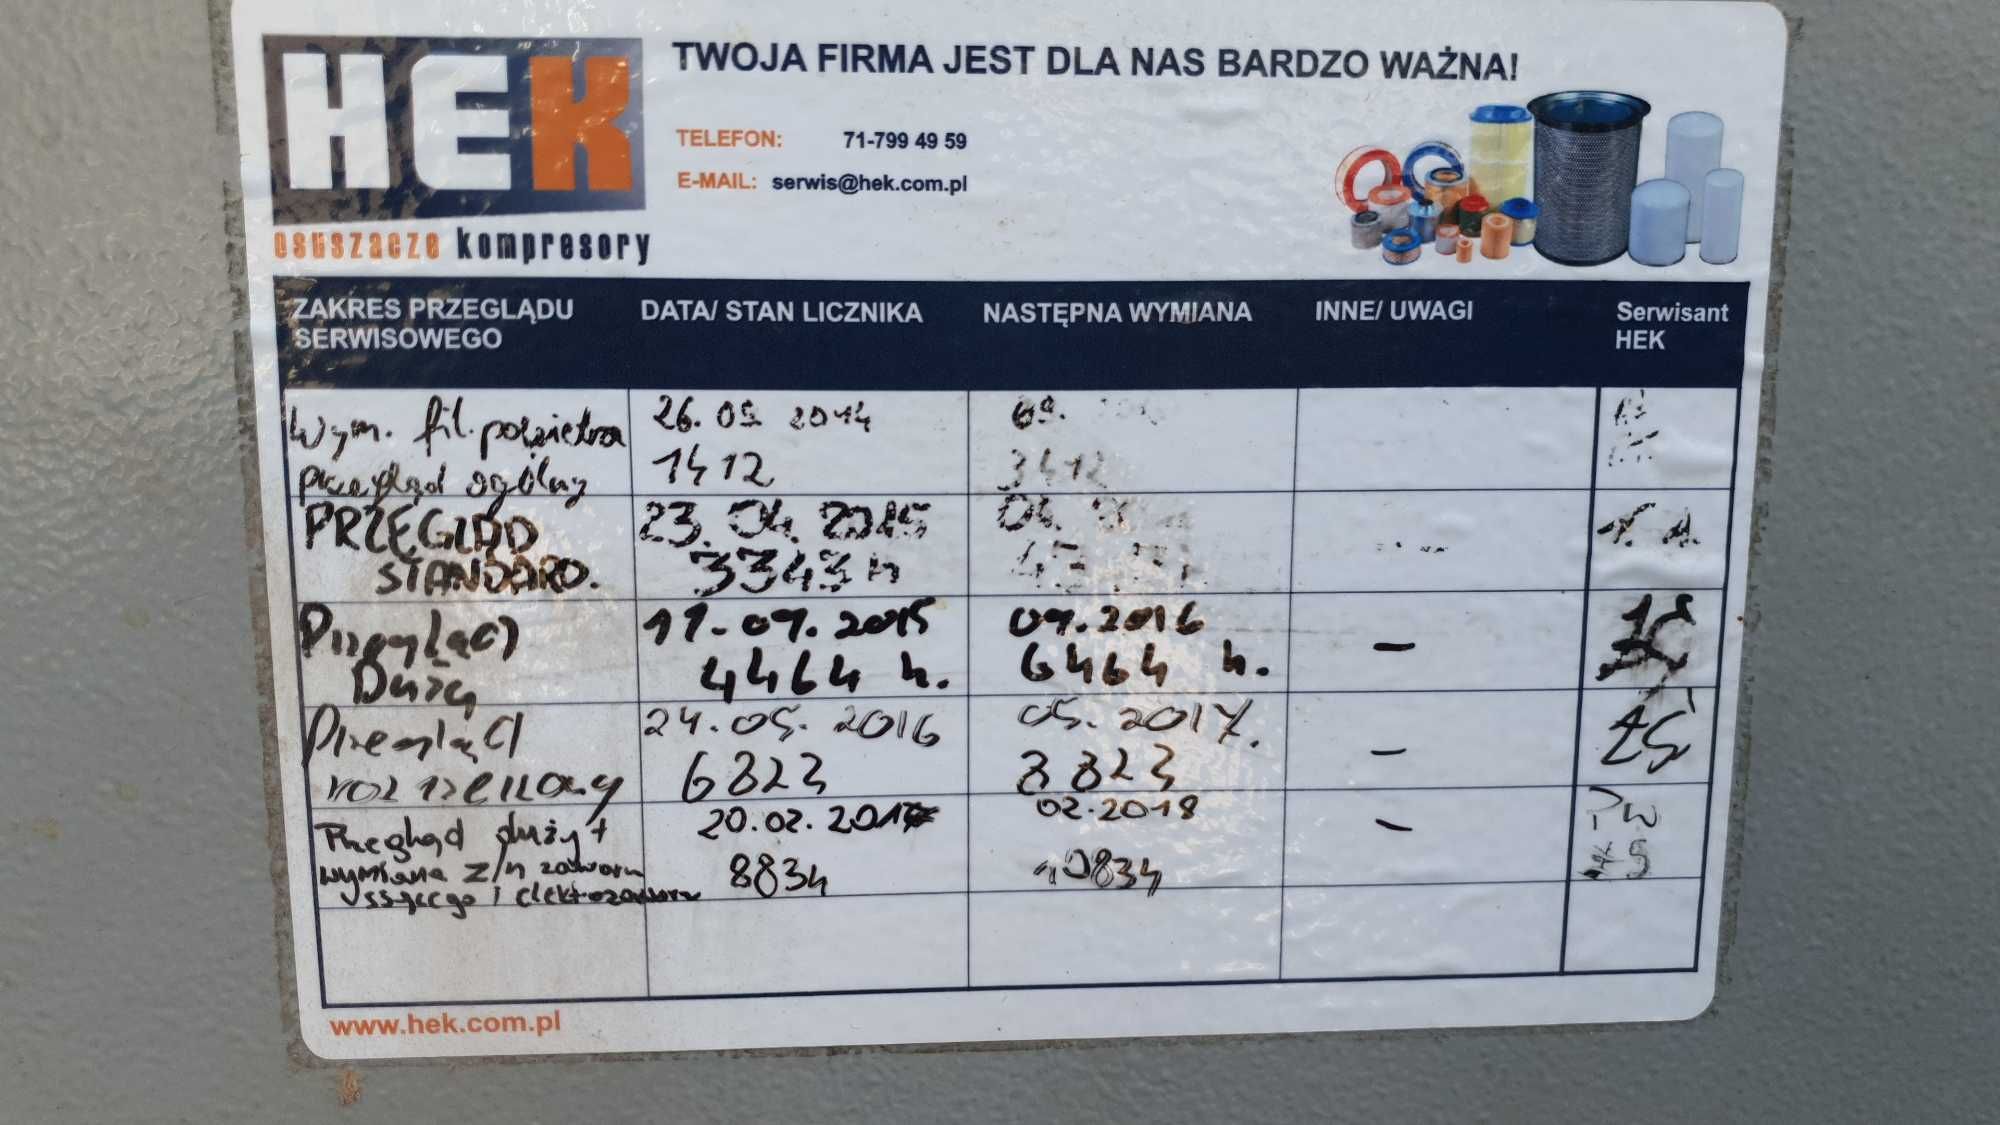 HEK
osuszacze kompresory
TWOJA FIRMA JEST DLA NAS BARDZO WAŻNA!
TELEFON: 71-799 49 59
E-MAIL: serwis@hek.com.pl
ZAKRES PRZEGLĄDU SERWISOWEGO
DATA/ STAN LICZNIKA
NASTĘPNA WYMIANA
INNE/ UWAGI
Serwisant HEK
Wym. fil. powietrza 26.09 2014 09.
przegląd ogólny 1412 3412
PRZEGLĄD 23.04.2015 04.
STANDARD. 3343 h
Przegląd 11.09.2015 09.2016 –
Duży 4464 h. 6464 h.
Przegląd 24.05.2016 05.2017. – ZŚ
rozszerzony 6823 8823
Przegląd duży + 20.02.2017 02.2018 – PW
wymiana z/n zaworu 8834 10834
ssącego i elektrozaworu
www.hek.com.pl